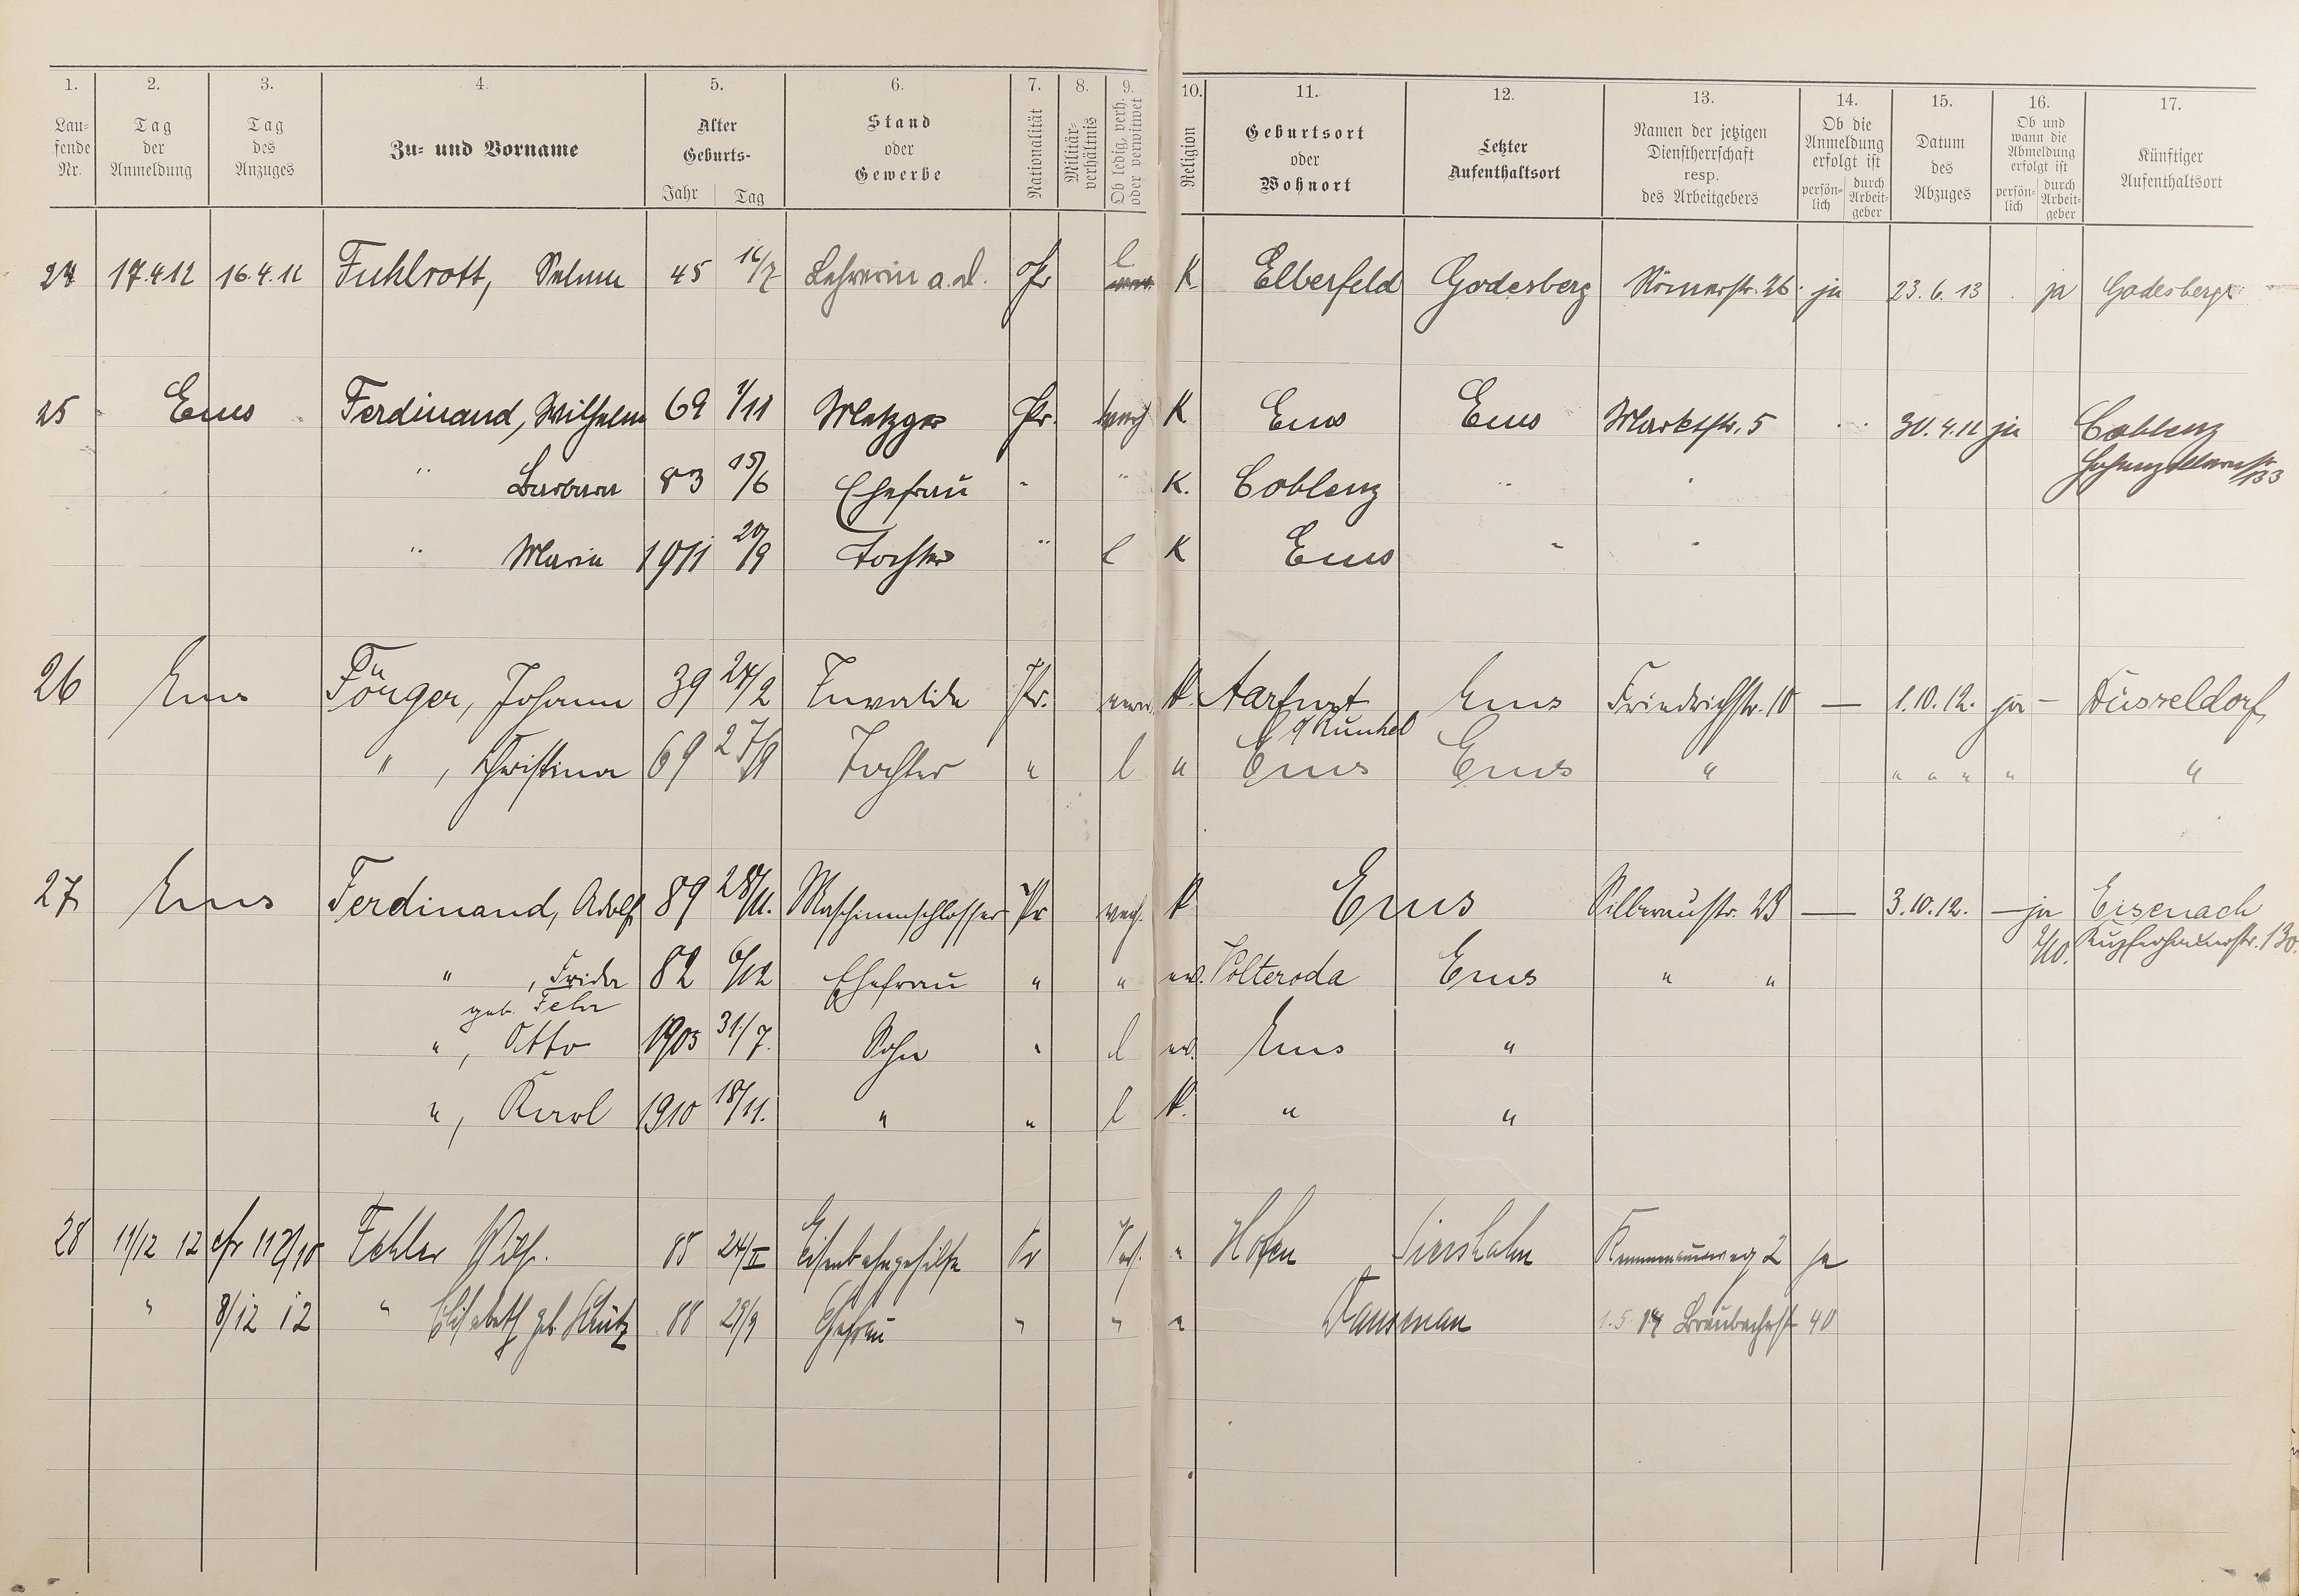 1. 2. 3. 4. 5. 6. 7. 8. 9. 10. 11. 12. 13. 14. 15. 16. 17.
Lau-
fende
Nr.
Tag
der
Anmeldung
Tag
des
Anzuges
Zu- und Vorname
Alter
Geburts-
Jahr Tag
Stand
oder
Gewerbe
Nationalität
Militär-
verhältnis
Ob ledig, verh.
oder verwitwet
Religion
Geburtsort
oder
Wohnort
Letzter
Aufenthaltsort
Namen der jetzigen
Dienstherrschaft
resp.
des Arbeitgebers
Ob die
Anmeldung
erfolgt ist
persön-
lich
durch
Arbeit-
geber
Datum
des
Abzuges
Ob und
wann die
Abmeldung
erfolgt ist
persön-
lich
durch
Arbeit-
geber
Künftiger
Aufenthaltsort
24 17.4.12 16.4.12 Fuhlrott, Selma 45 Lehrerin a.d. Pr l K. Elberfeld Godesberg Römerstr. 26. ja 23.6.13 ja Godesberg
25 Ems Ferdinand, Wilhelm 69 1/11 Metzger Pr. verh K. Ems Ems Marktstr. 5 30.4.12 ja Coblenz
Hohenzollernstr
133
" Barbara 83 15/6 Ehefrau " " K. Coblenz " "
" Maria 1911 20/9 Tochter " l K Ems " "
26 Ems Fönger, Johann 39 24/2 Invalide Pr. verw. K. Aarfurt Ems Friedrichstr. 10 — 1.10.12. ja – Düsseldorf
Runkel
" , Christina 69 27/9 Tochter " l " Ems Ems " " " " " "
27 Ems Ferdinand, Adolf 89 28/11. Maschinenschlosser Pr verh. K Ems Silberaustr. 23 — 3.10.12. — ja Eisenach
2/10. Kupferhammerstr. 130.
" , Frida 82 6/12 Ehefrau " " ev. Polteroda Ems " "
geb. Fehr
" , Otto 1903 31/7. Sohn " l ev. Ems "
" , Karl 1910 18/11. " " l K. " "
28 11/12 12 Fehler Wilh. 88 24/II Eisenbahngehilfe Pr Verh. " Hofen Siershahn Kemmenauerweg 2 ja
" 8/12 12 " Elisabeth geb. Schütz 88 29/9 Ehefrau " " " Dausenau 1.5.14 Braubacherstr 40